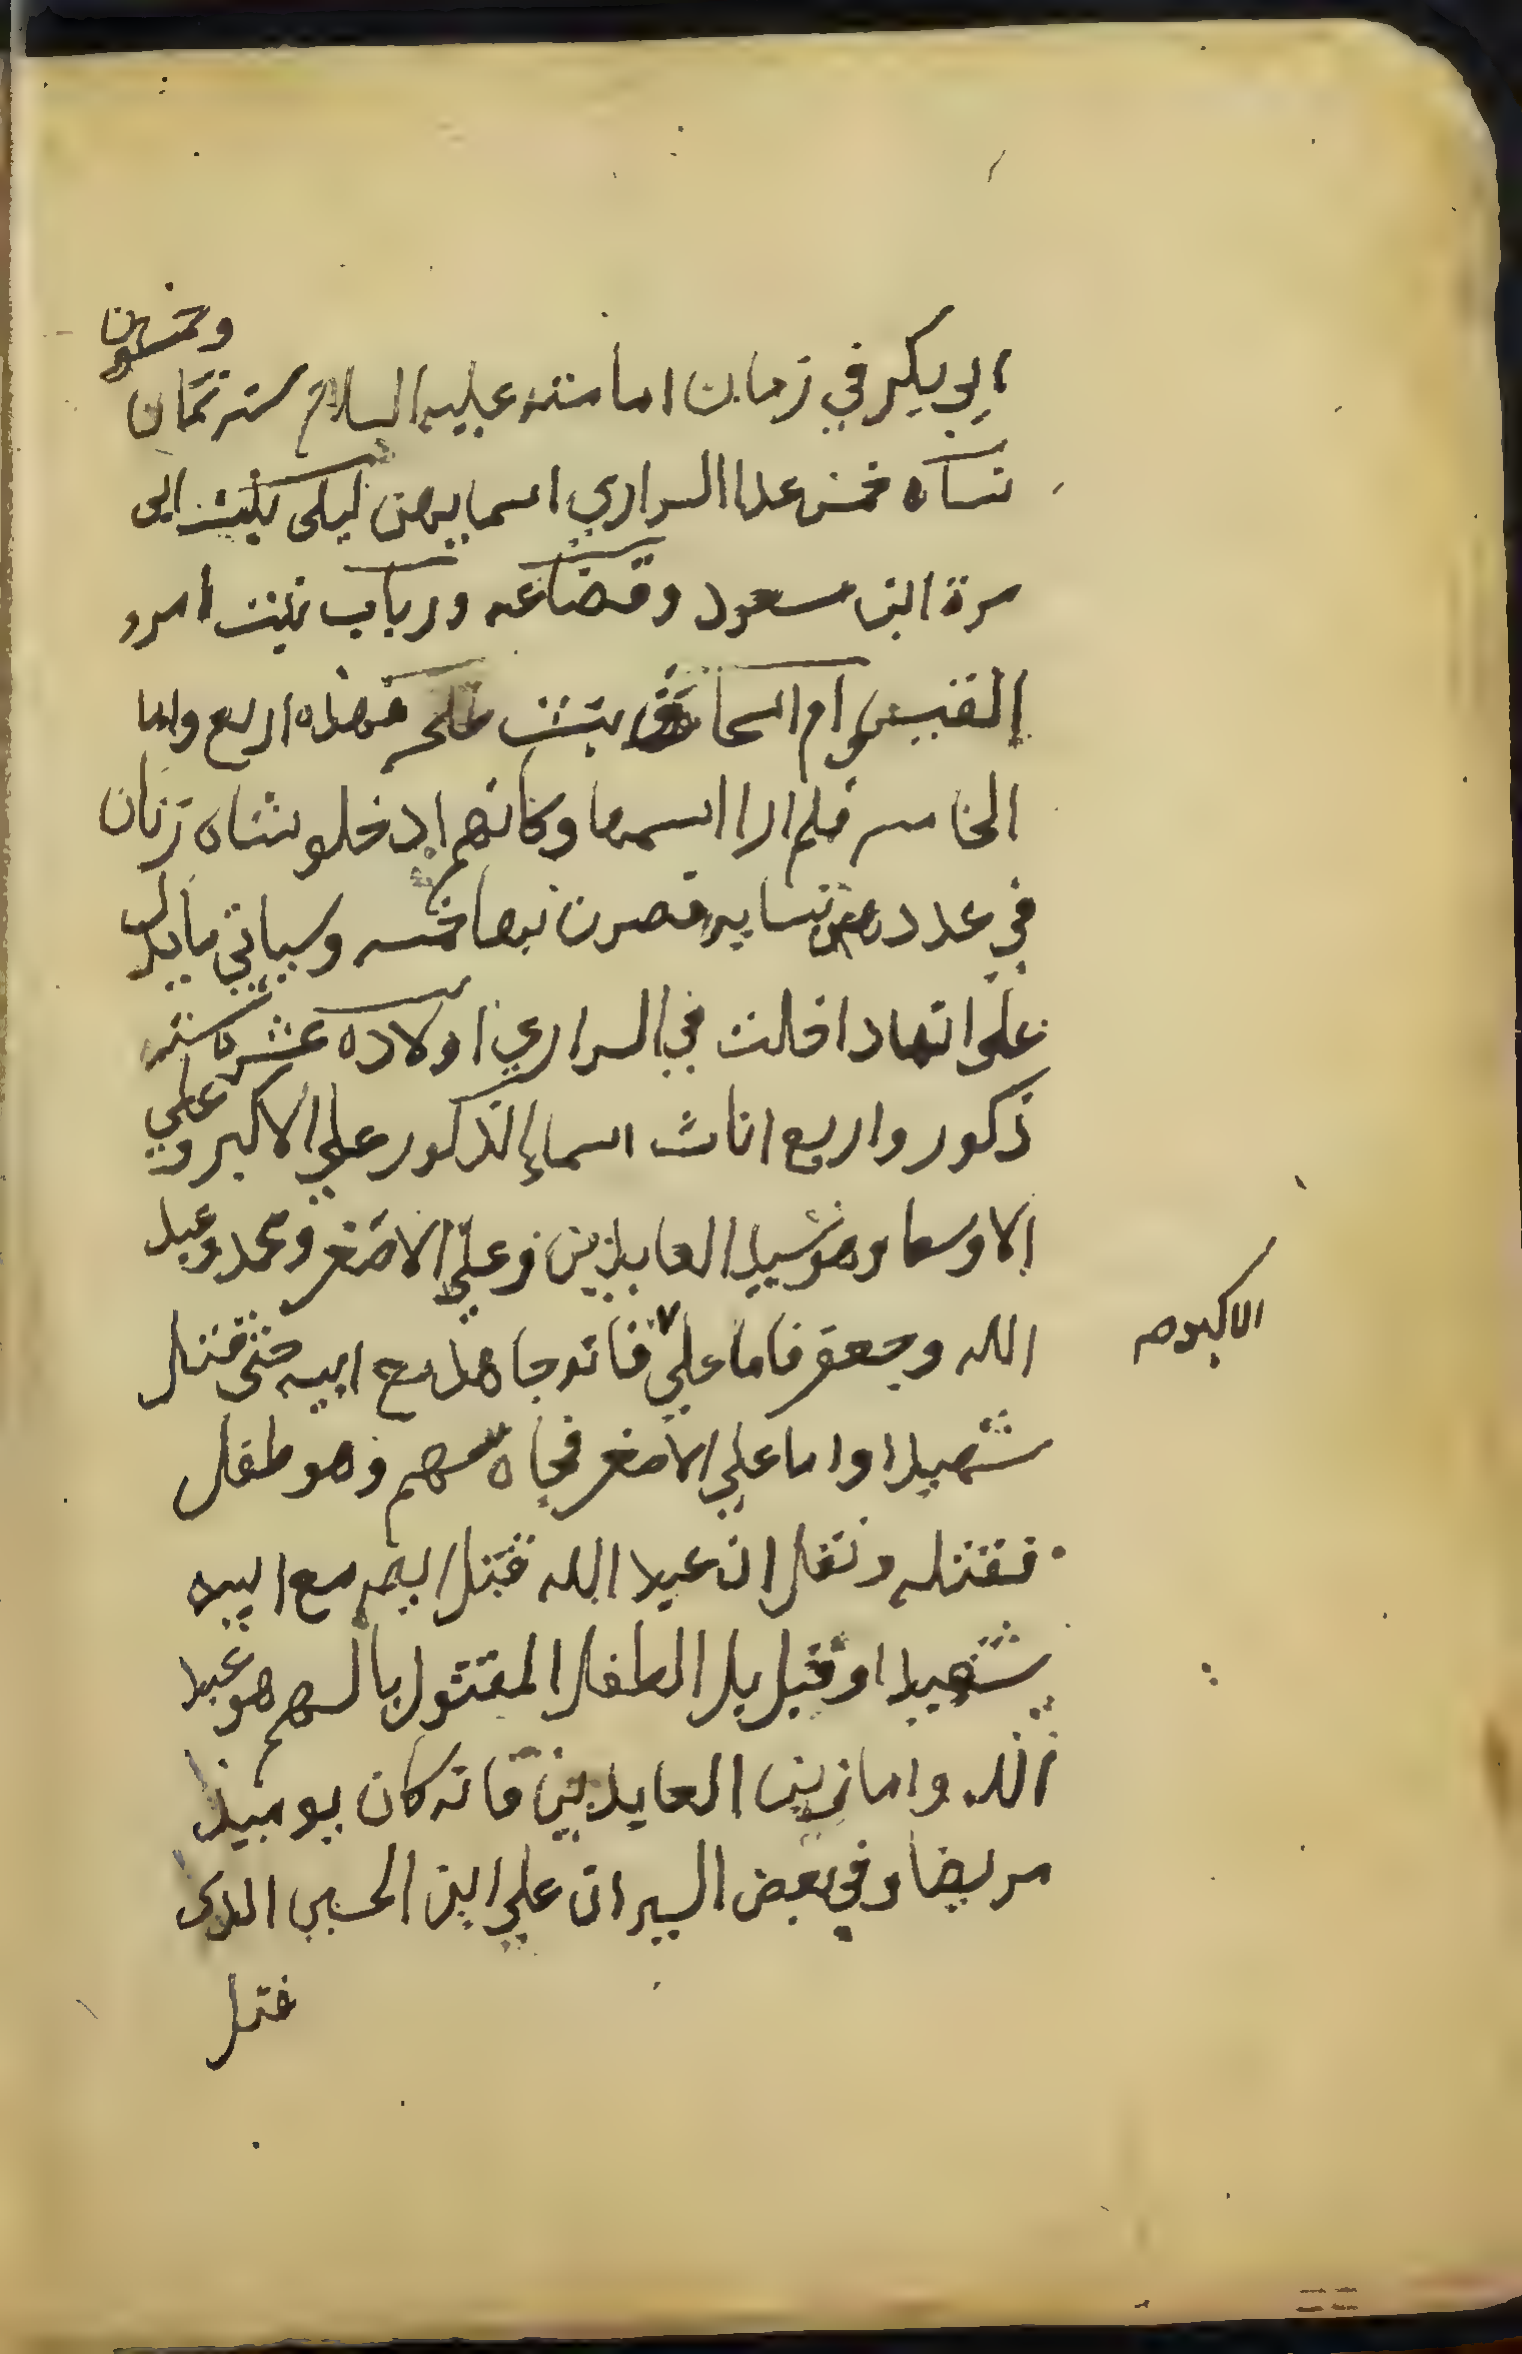 ابي بكر في زمان امامته عليه السلام سنة ثمان وخمسون
نساه خمس عدا السراري اسمايهن ليلى بنت ابي
مرة ابن مسعود وقضاعه ورباب بنت امرء
القيس وام اسحاق بنت طلحه فهذه اربع واما
الخامسه فلم ارا اسمها وكانهم ادخلو شاه زنان
في عدد نسايه فصرن بها خمسه وسياتي ما يدل
على انها داخلت في السراري اولاده عشرة سته
ذكور واربع اناث اسماء الذكور علي الاكبر وعلي
الاوسط وهو سيد العابدين وعلي الاصغر ومحمد وعبد
الله وجعفر فاما علي فانه جاهد مع ابيه حتى قتل
الاكبر صح
شهيدا واما علي الاصغر فجاه سهم وهو طفل
فقتله ونقل ان عبد الله قتل ايضا مع ابيه
شهيدا وقيل بل الطفل المقتول بالسهم هو عبد
الله واما زين العابدين فانه كان يوميذ
مريضا وفي بعض السير ان علي ابن الحسين الذي
قتل